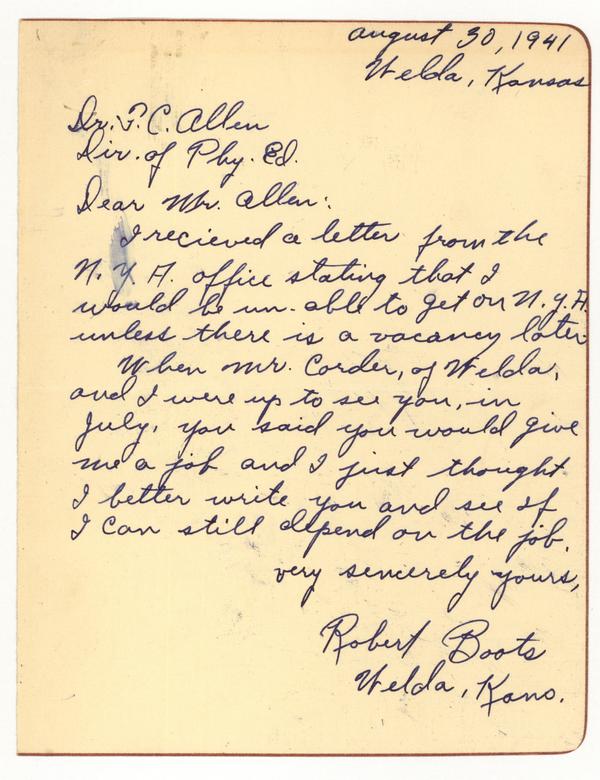 august 30, 1941
Welda, Kansas
Dr. F. C. Allen
Dir. of Phy. Ed.
Dear Mr. Allen:
I recieved a letter from the
N. Y. A. office stating that I
would be un-able to get on N. Y. A.
unless there is a vacancy later
When Mr. Corder, of Welda,
and I were up to see you, in
July, you said you would give
me a job and I just thought
I better write you and see if
I can still depend on the job.
very sincerely yours,
Robert Boots
Welda, Kans.